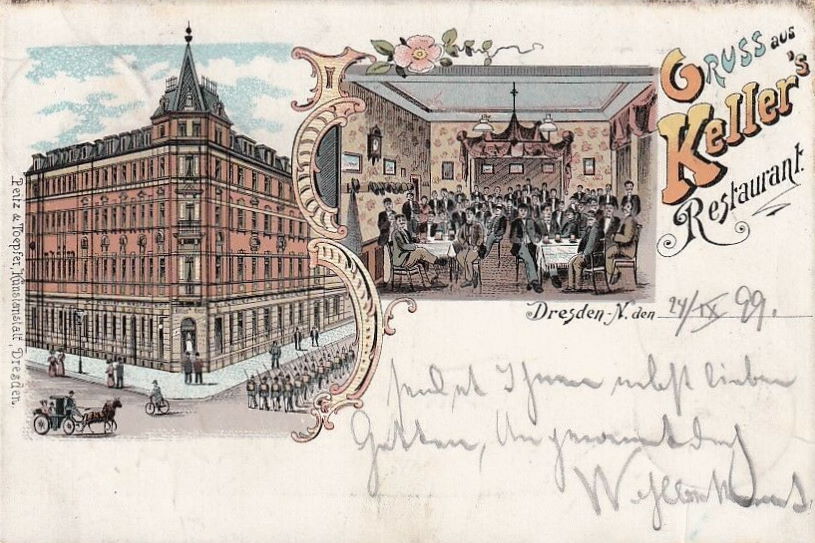 Gruss aus
Keller's
Restaurant.
Dresden-N. den 24/IX 99.
sendet Ihnen nebst lieben
Gatten,
Peitz & Toepfer, Kunstanstalt, Dresden.